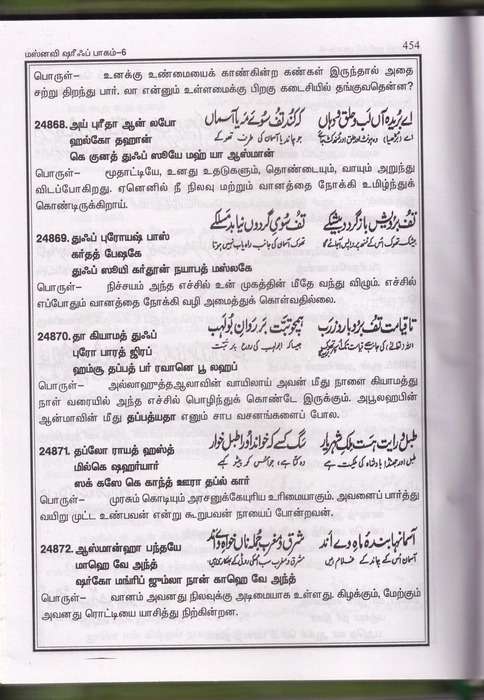 மஸ்னவி ஷரீஃப் பாகம்–6 454
பொருள்– உனக்கு உண்மையைக் காண்கின்ற கண்கள் இருந்தால் அதை
சற்று திறந்து பார். லா என்னும் உள்ளமைக்கு பிறகு கடைசியில் தங்குவதென்ன?
24868. அய் புரீதா ஆன் லபோ
ஹல்கோ தஹான்
கெ குனத் துஃப் ஸூயே மஹ் யா ஆஸ்மான்
اے بریدہ آں لب و حلق و دہاں کہ کند تف سوئے مہ یا آسماں
பொருள்– மூதாட்டியே, உனது உதடுகளும், தொண்டையும், வாயும் அறுந்து
விடப்போகிறது. ஏனெனில் நீ நிலவு மற்றும் வானத்தை நோக்கி உமிழ்ந்துக்
கொண்டிருக்கிறாய்.
24869. துஃப் புரோயஷ் பாஸ்
கர்தத் பேஷகே
துஃப் ஸூயி கர்தூன் நயாபத் மஸ்லகே
تف برویش باز گردد بیشکے تف سوی گردوں نیابد مسلکے
பொருள்– நிச்சயம் அந்த எச்சில் உன் முகத்தின் மீதே வந்து விழும். எச்சில்
எப்போதும் வானத்தை நோக்கி வழி அமைத்துக் கொள்வதில்லை.
24870. தா கியாமத் துஃப்
புரோ பாரத் ஜிரப்
ஹம்சூ தப்பத் பர் ரவானெ பூ லஹப்
تا قیامت تف برو بارد ز رب ہمچو تبت بر روان بولہب
பொருள்– அல்லாஹுத்தஆலாவின் வாயிலாய் அவன் மீது நாளை கியாமத்து
நாள் வரையில் அந்த எச்சில் பொழிந்துக் கொண்டே இருக்கும். அபூலஹபின்
ஆன்மாவின் மீது தப்பத்யதா எனும் சாப வசனங்களைப் போல.
24871. தப்லோ ராயத் ஹஸ்த்
மில்கெ ஷஹர்யார்
ஸக் கஸே கெ காந்த் ஊரா தப்ல் கார்
طبل و رایت ہست ملک شہریار سگ کسے کہ خواند او را طبل خوار
பொருள்– முரசும் கொடியும் அரசனுக்கேயுரிய உரிமையாகும். அவனைப் பார்த்து
வயிறு முட்ட உண்பவன் என்று கூறுபவன் நாயைப் போன்றவன்.
24872. ஆஸ்மான்ஹா பந்தயே
மாஹெ வே அந்த்
ஷர்கோ மங்ரிப் ஜும்லா நான் காஹெ வே அந்த்
آسمانہا بندہ ماہ وے اند شرق و مغرب جملہ ناں خواہ وے اند
பொருள்– வானம் அவனது நிலவுக்கு அடிமையாக உள்ளது. கிழக்கும், மேற்கும்
அவனது ரொட்டியை யாசித்து நிற்கின்றன.